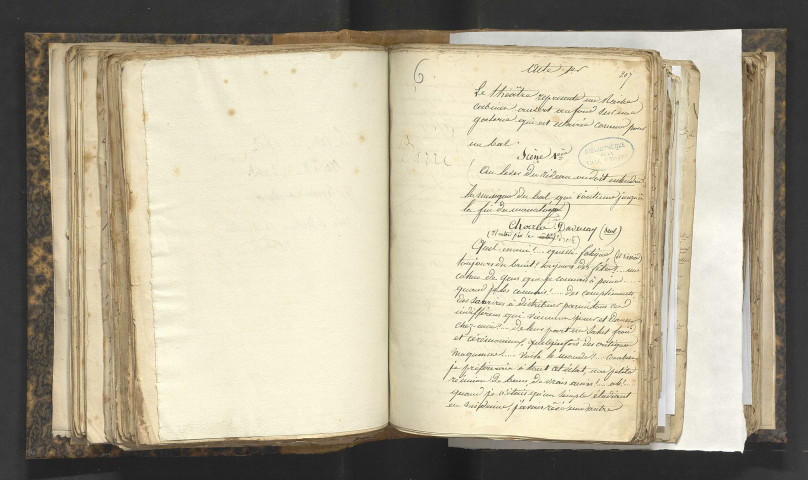 6
Acte 1er
207
Le théâtre représente un riche
cabinet ouvert au fond sur une
galerie qui est éclairée comme pour
un bal.
Scène 1ère
BIBLIOTHÈQUE
(Au lever du rideau on doit entendre
la musique du bal qui continue jusqu'à
la fin du monologue)
Charles Davenay (seul)
(il entre par la droite)
Quel ennui!... quelle fatigue
toujours du bruit! toujours des fêtes!... une
cohue de gens que je connais à peine....
quand je les connais!.... Des compliments
des sourires à distribuer parmi tous ces
indifférens qui viennent jouer et danser
chez moi!... De leur part un salut froid
et cérémonieux, quelquefois des critiques
moqueuses!.... Voilà le monde!...
je préférerais à tout cet éclat, une petite
réunion de bons de vrais amis!... oh!
quand je n'étais qu'un simple étudiant
en médecine, j'avais rêvé une autre